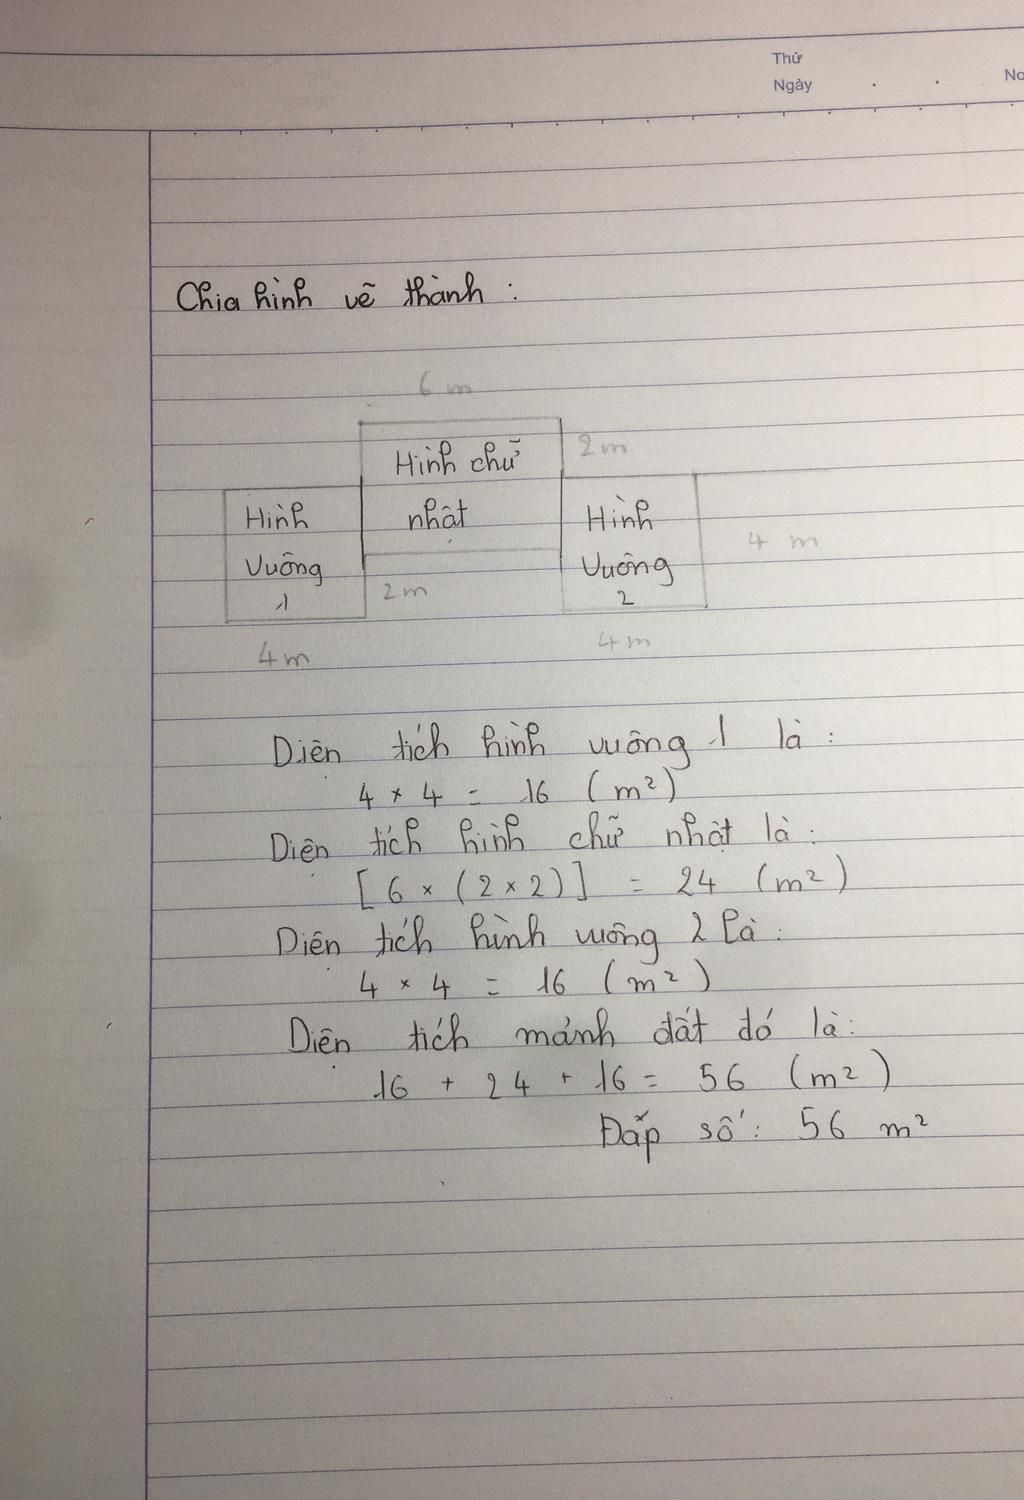 Thứ
Ngày
No
Chia hình vẽ thành :
6 m
Hình chữ
nhật
2 m
Hình
Vuông
1
Hình
Vuông
2
4 m
2 m
4 m
4 m
Diện tích hình vuông 1 là :
4 × 4 = 16 (m²)
Diện tích hình chữ nhật là :
[6 × (2 × 2)] = 24 (m²)
Diện tích hình vuông 2 là :
4 × 4 = 16 (m²)
Diện tích mảnh đất đó là :
16 + 24 + 16 = 56 (m²)
Đáp số : 56 m²